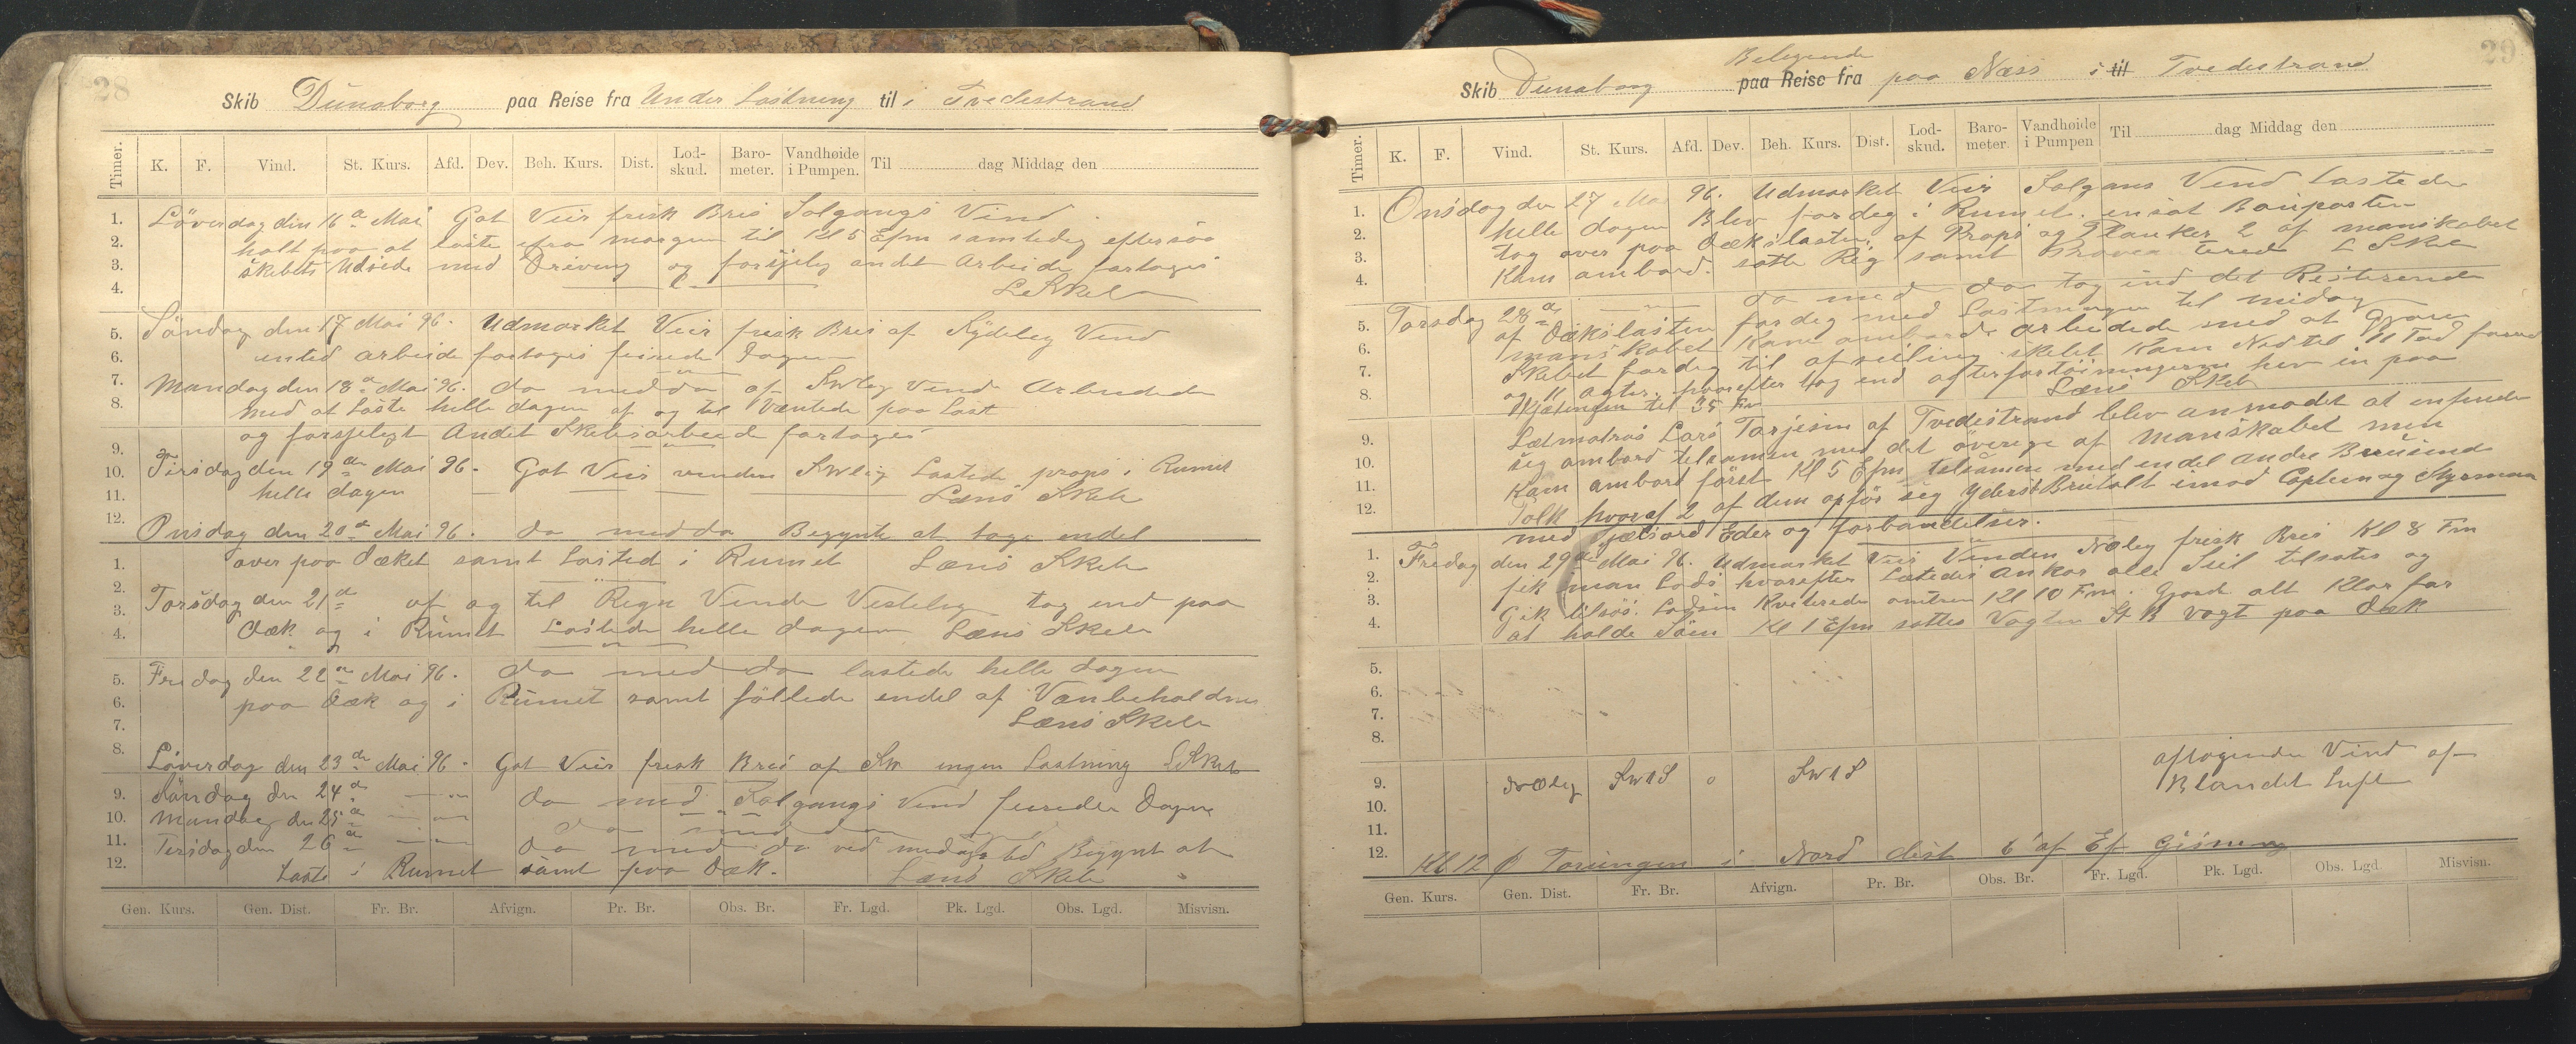 28
Skib Dünaborg paa Reise fra Under Lastning til i Tvedestrand
Timer. K. F. Vind. St. Kurs. Afd. Dev. Beh. Kurs. Dist. Lod-skud. Baro-meter. Vandhøide i Pumpen. Til dag Middag den
1. Löverdag din 16 a Mai Got Veir frisk Bris Solgangs Vind
2. holt paa at laste fra morgen til Kl 5 Efm samtedig eftersaa
3. skebets Udside med Drivning og forsjelig andet Arbeide fortoges
4. L Skeb
5. Söndag den 17 Mai 96. Udmarket Veir frisk Bris af Sydeleg Vend
6. inted arbeide fortoges feirede Dagen
7. Mandag den 18 a Mai 96. do med do af Swleg Vend Arbeidede
8. med at Laste helle dagen af og til Væntede paa Last
og forsjeligt Andet Skebsarbeede fortoges
9.
10. Tirsdag den 19 de Mai 96. Got Veir vinden Swlig Lastede props i Rumet
11. helle dagen Læns Skeb
12. Onsdag den 20 d Mai 96. do med do Begynte at tage endel
1. over paa Dæket samt Lasted i Rumet Læns Skeb
2.
3. Torsdag den 21 d af og til Regn Vende Vesteleg tog end paa
4. Dæk og i Rumet Lastede helle dagen Læns Skeb
5. Fredag den 22 a Mai 96. do med do lastede helle dagen
6. paa Dæk og i Rumet samt föllede endel af Vanbeholdnin
7. Læns Skeb
8. Löverdag den 23 de Mai 96. Got Veir frisk Bris af Sw ingen Lastning L Skeb
9. Söndag den 24 de do med Solgangs Vend feirede Dagen
10. Mandag den 25 a do med do
11. Tirsdag den 26 a do med do ved medags tid Begynt at
12. Laste i Rumet samt paa Dæk. Læns Skeb
Gen. Kurs. Gen. Dist. Fr. Br. Afvign. Pr. Br. Obs. Br. Fr. Lgd. Pk. Lgd. Obs. Lgd. Misvisn.
29
Belegende
Skib Dunaborg paa Reise fra paa Næss i til Tvedestrand
Timer. K. F. Vind. St. Kurs. Afd. Dev. Beh. Kurs. Dist. Lod-skud. Baro-meter. Vandhøide i Pumpen Til dag Middag den
1. Onsdag den 27 Mai 96. Udmarket Veir Solgans Vend Lastede
2. helle dagen Blev fordeg i Rumet. ensat Bauporten
3. tog over paa Dækslasten af Props og Planker 2 af manskabet
4. Kam ambord. satte Rig samt L Skeb
5. Torsdag 28 a do med do tog ind det Resterende
6. af Dækslasten fardeg med Lastningen til midag
7. manskabet Kam ambord arbeidede med at Gjøre
8. Skebet fardeg til afseiling skebet Kam Ned til 11 Fod forud
og 11 agter. hvorefter tog end agterfortöiningerne hev in paa
Kjætingen til 35 Fv Læns Skeb
9. Letmatros Lars Tarjesen af Tvedestrand blev anmodet at enfinde
10. seg ambord telsamen med det överige af Manskabet men
11. Kam ambord först Kl 5 Efm telsamen med endel andre Beruisende
12. Folk hvoraf 2 af dem opför seg yderst Brutalt imod Captein og Styrman
med Skjelsord Eder og forbandelser.
1. Fredag den 29 de Mai 96. Udmarket Veir Vinden Nöleg frisk Bris Kl 8 Fm
2. fik man Lods hvorefter Lettedes Ankar alle Seil tilsates og
3. Gik tilsøs. Lodsen Kviterede omtren Kl 10 Fm. Gjorde alt Klar for
4. at holde Søen Kl 1 Efm sattes Vagten St B Vagt paa Dæk
5.
6.
7.
8.
9. Nöleg Sw1S 0 Sw1S aftagende Vind af
10. Blandet Luft
11.
12. Kl 12 Ø Torungen i Nord dist 6' af Ef Gisning
Gen. Kurs. Gen. Dist. Fr. Br. Afvign. Pr. Br. Obs. Br. Fr. Lgd. Pk. Lgd. Obs. Lgd Misvisn.